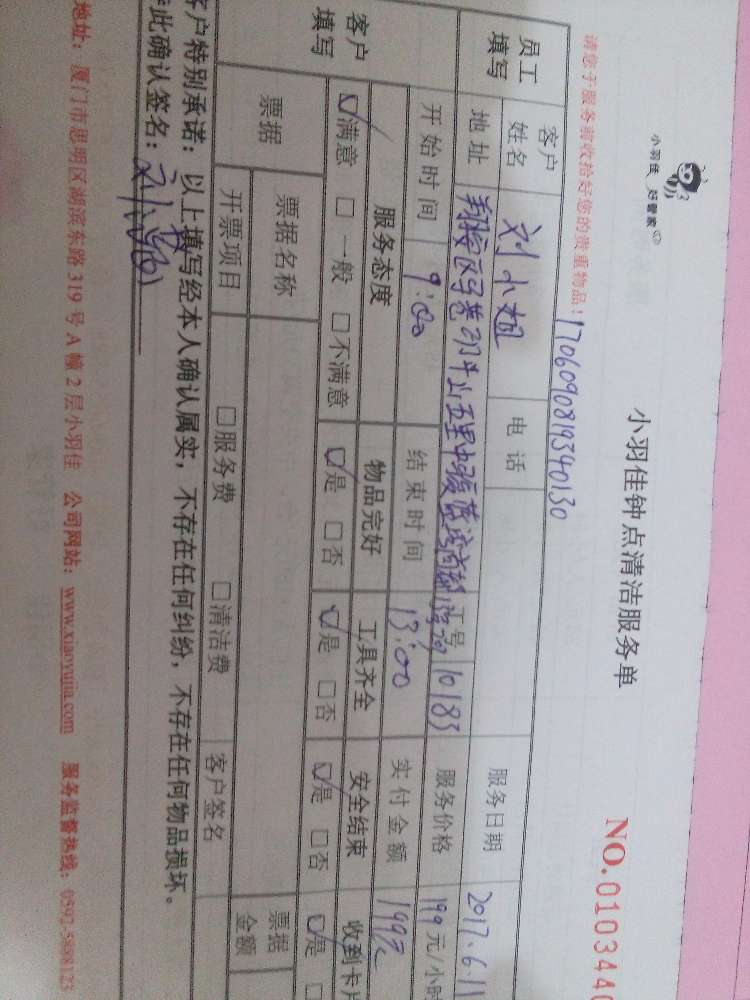 小羽佳 好管家
小羽佳钟点清洁服务单
NO.0103440
请您于服务前收拾好您的贵重物品！
1706090819340130
员工填写 客户姓名 刘小姐 电话 服务日期 2017.6.11
地址 工号 10183 服务价格 199元/小时
开始时间 9:00 结束时间 13:00 实付金额 199元
客户填写 服务态度 物品完好 工具齐全 安全结束 收到卡片
☑满意 □一般 □不满意 ☑是 □否 ☑是 □否 ☑是 □否 ☑是
票据 票据名称 票据金额
开票项目 □服务费 □清洁费 客户签名
客户特别承诺：以上填写经本人确认属实，不存在任何纠纷，不存在任何物品损坏。
此确认签名：
地址：厦门市思明区湖滨东路319号A幢2层小羽佳 公司网站：www.xiaoyujia.com 服务监督热线：0592-5888123